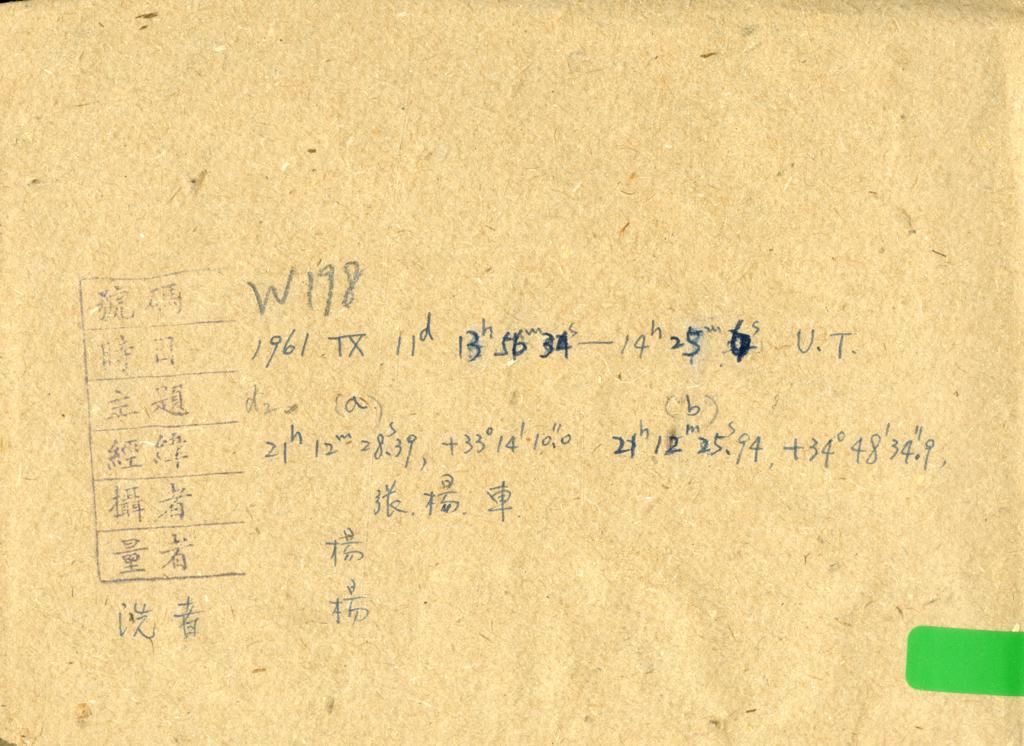 號碼 W198
時日 1961 IX 11ᵈ 13ʰ 56ᵐ 34ˢ — 14ʰ 25ᵐ 6ˢ U.T.
主題 (a) (b)
經緯 21ʰ 12ᵐ 28ˢ.39, +33° 14′ 10″.0 21ʰ 12ᵐ 25ˢ.94, +34° 48′ 34″.9,
攝者 張.楊.車
量者 楊
洗者 楊